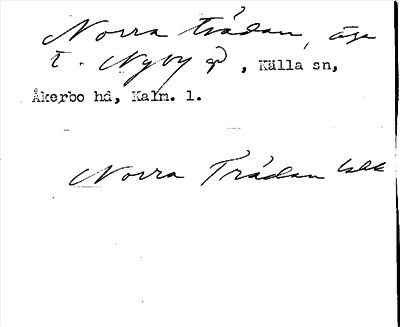 Norra trådan, äga
t. Nyby gd, Källa sn,
Åkerbo hd, Kalm. l.
Norra Trådan